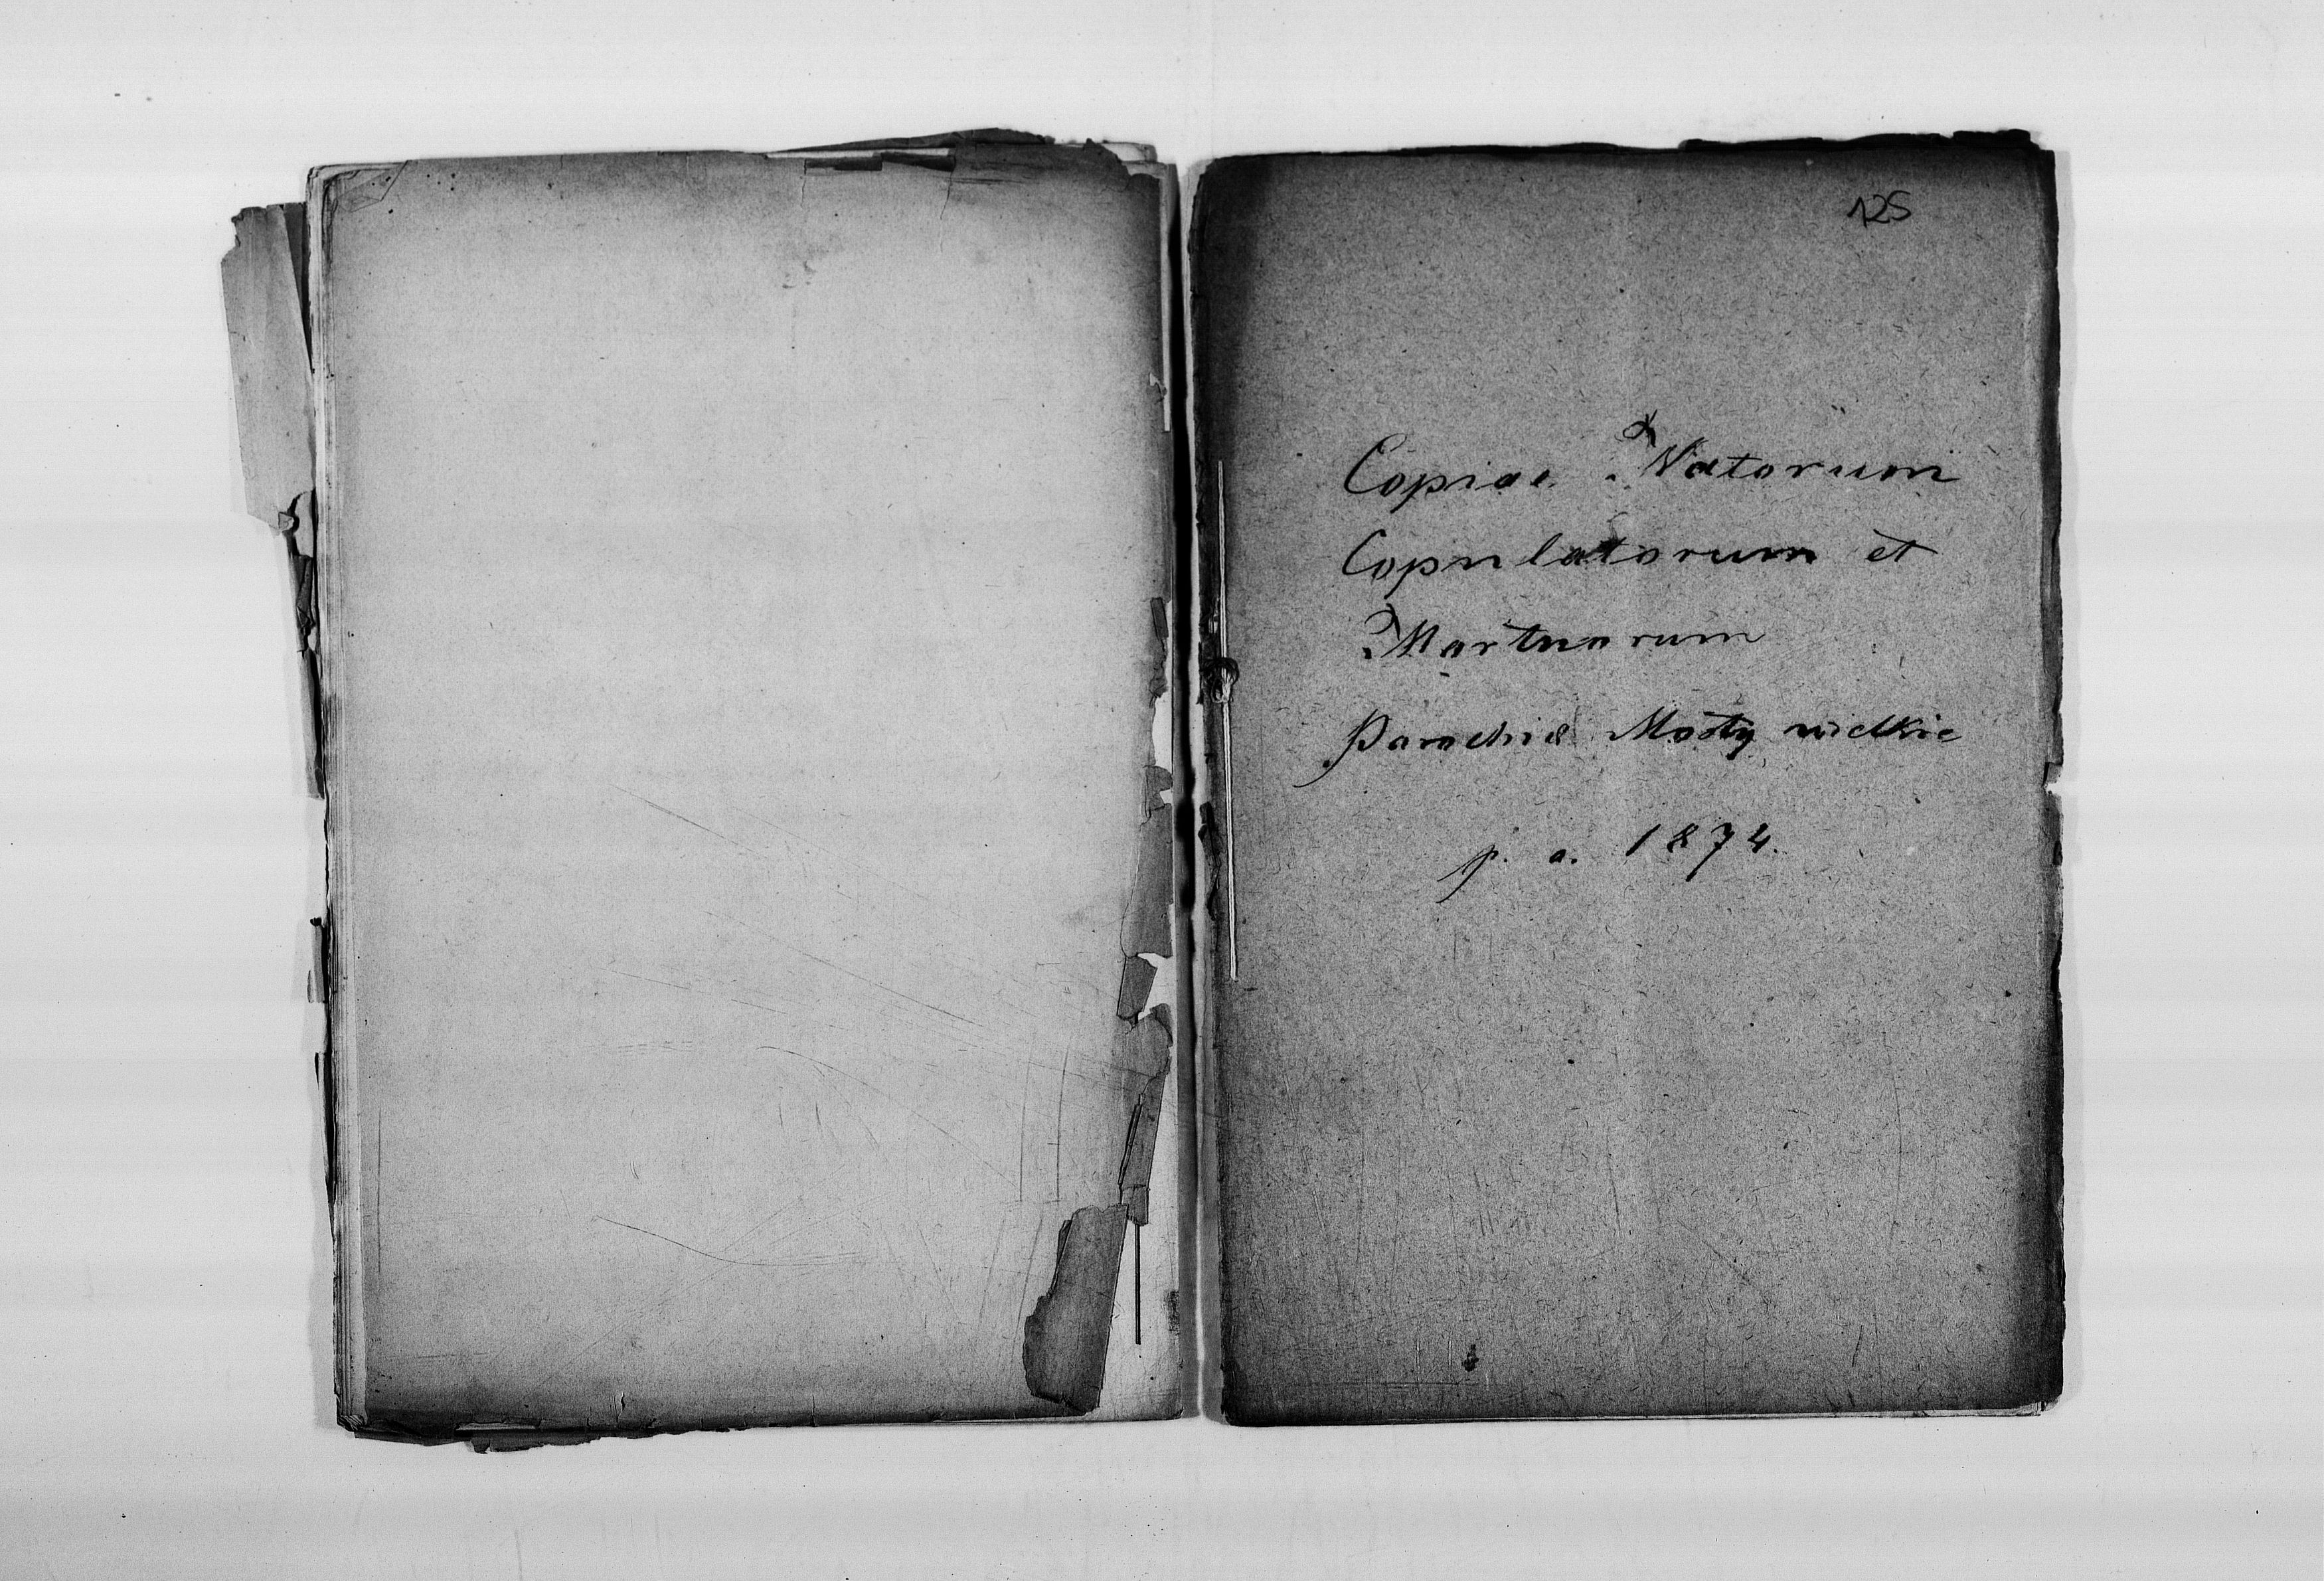 125
Copiae Natorum
Copulatorum et
Mortuorum
Parochiæ Mosty wielkie
p. a. 1874.